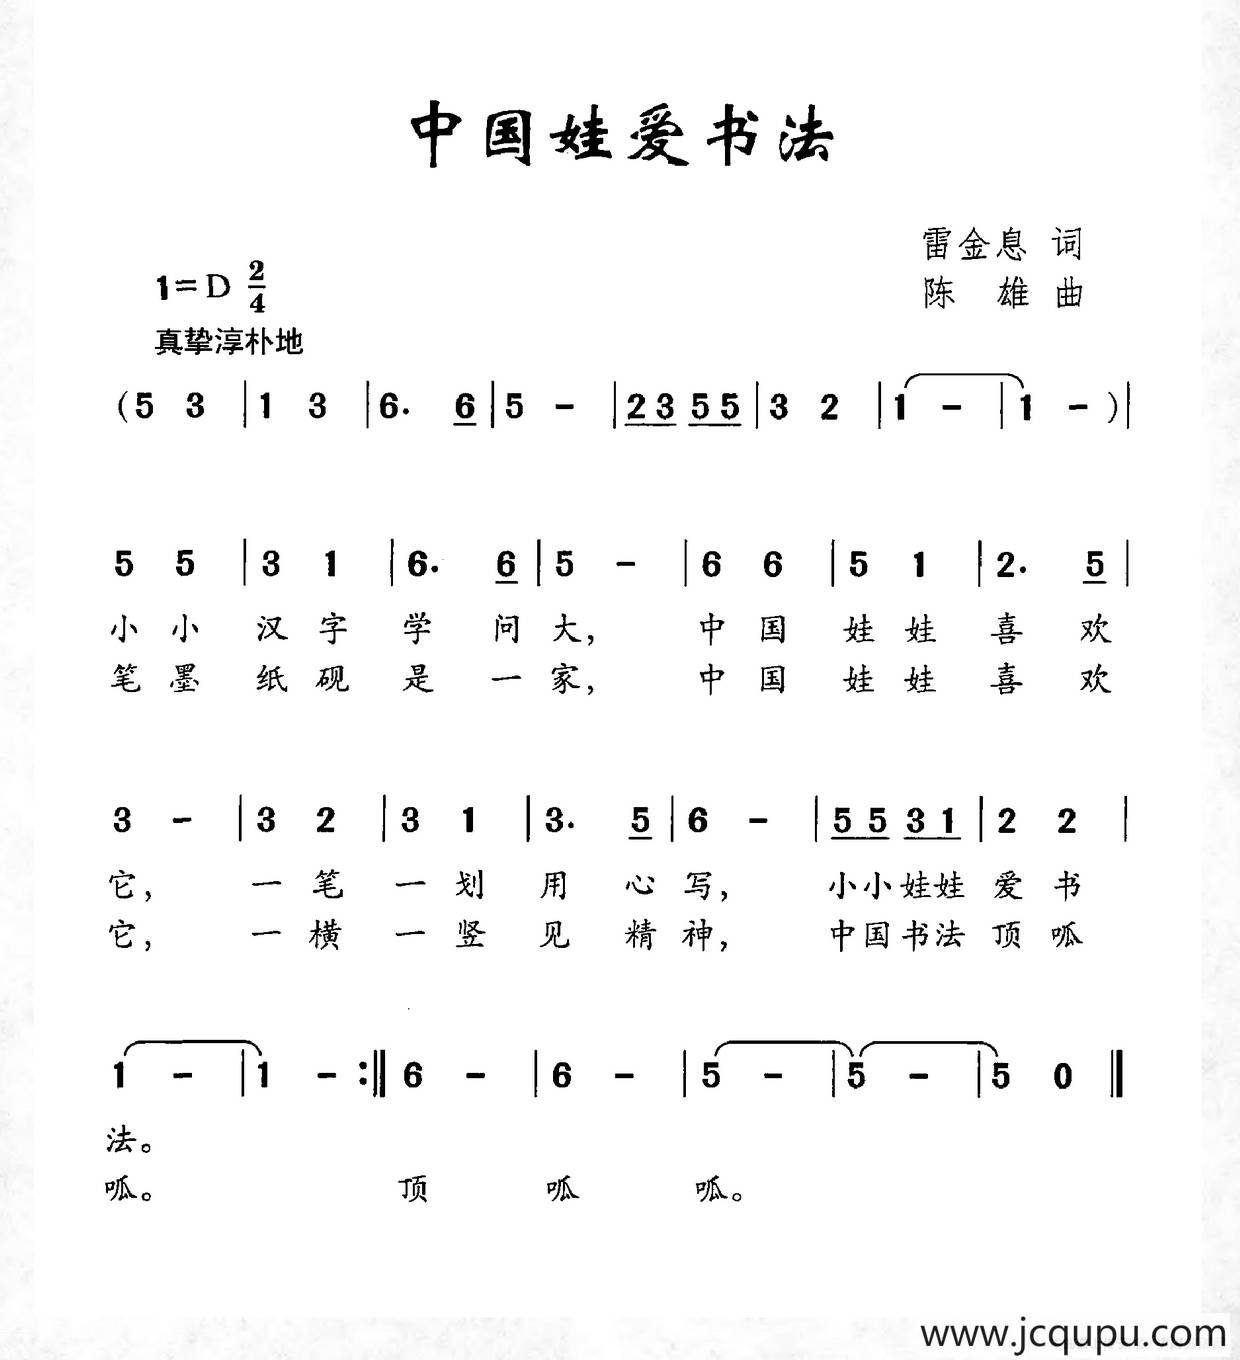 中国娃爱书法
雷金息 词
1=D 2/4
陈 雄 曲
真挚淳朴地
(5 3 | 1 3 | 6. 6 | 5 - | 23 55 | 3 2 | 1 - | 1 - )|
5 5 | 3 1 | 6. 6 | 5 - | 6 6 | 5 1 | 2. 5 |
小 小 汉 字 学 问 大, 中 国 娃 娃 喜 欢
笔 墨 纸 砚 是 一 家, 中 国 娃 娃 喜 欢
3 - | 3 2 | 3 1 | 3. 5 | 6 - | 55 31 | 2 2 |
它, 一 笔 一 划 用 心 写, 小小娃娃 爱 书
它, 一 横 一 竖 见 精 神, 中国书法 顶 呱
1 - | 1 - :‖ 6 - | 6 - | 5 - | 5 - | 5 0 ‖
法。
呱。 顶 呱 呱。
www.jcqupu.com